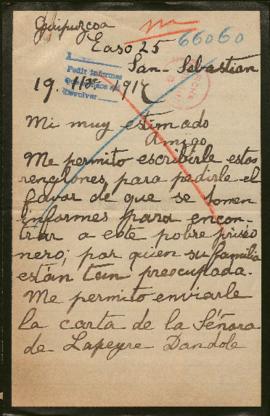 Guipuzcoa
Easo 25
66060
San-Sebastian
Pedir informes
Devolver
19
Mi muy estimado
Amigo
Me permito escribirle estos
renglones, para pedirle el
favor de que se tomen
informes para encon-
trar a este pobre prisio
nero; por quien su familia
están tan preocupada.
Me permito enviarle
la carta de la Señora
de Lapeyre Dandole